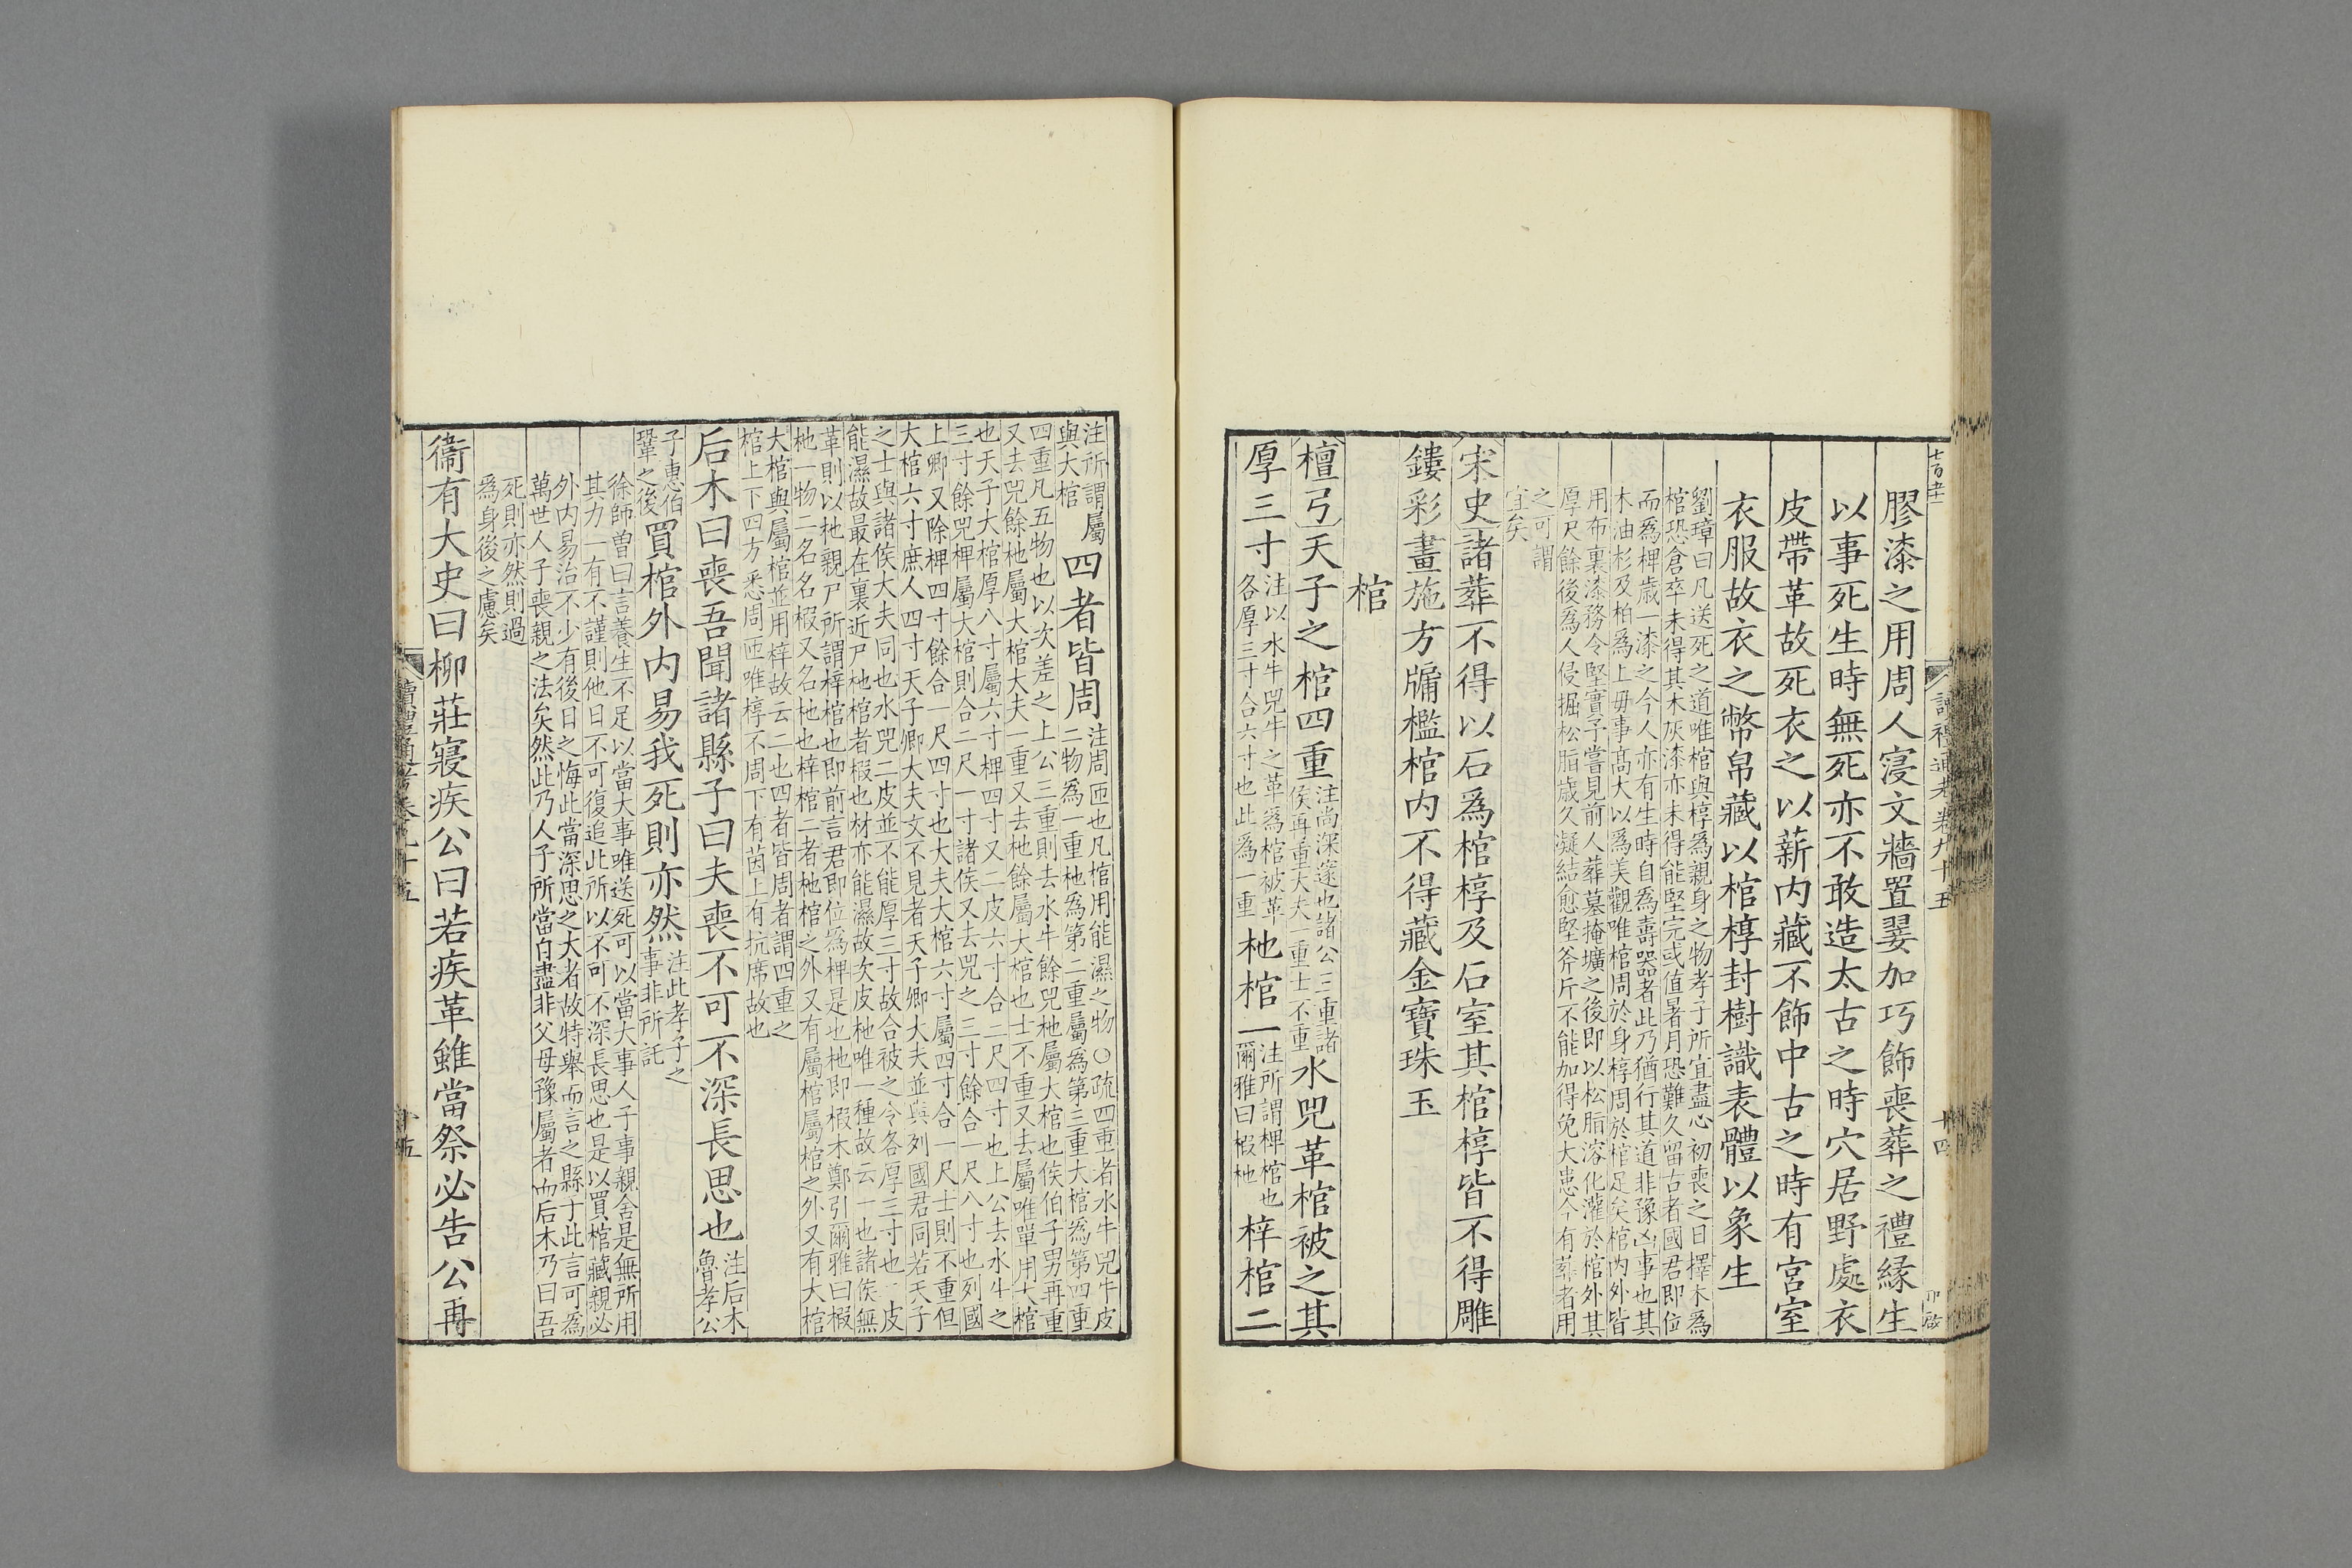 膠漆之用周人寖文牆置翣加巧飾喪葬之禮緣生
以事死生時無死亦不敢造太古之時穴居野處衣
皮帶革故死衣之以薪內藏不飾中古之時有宮室
衣服故衣之幣帛藏以棺椁封樹識表體以象生
劉璋曰凡送死之道唯棺與椁爲親身之物孝子所宜盡心初喪之日擇木爲
棺恐倉卒未得其木灰漆亦未得能堅完或值暑月恐難久留古者國君即位
而爲椑歲一漆之今人亦有生時自爲壽器者此乃猶行其道非豫凶事也其
木油杉及柏爲上毋事高大以爲美觀唯棺周於身椁周於棺足矣棺內外皆
用布裹漆務令堅實予嘗見前人葬墓掩壙之後即以松脂溶化灌於棺外其
厚尺餘後爲人侵掘松脂歲久凝結愈堅斧斤不能加得免大患今有葬者用
之可謂
宜矣
宋史諸葬不得以石爲棺椁及石室其棺椁皆不得雕
鏤彩畫施方牗檻棺內不得藏金寶珠玉
棺
檀弓天子之棺四重注尚深邃也諸公三重諸侯再重大夫一重士不重水兕革棺被之其
厚三寸注以水牛兕牛之革爲棺被革各厚三寸合六寸也此爲一重杝棺一注所謂椑棺也爾雅曰椵杝梓棺二
讀禮通考卷九十五
十四
注所謂屬與大棺四者皆周注周匝也凡棺用能濕之物○疏四重者水牛兕牛皮二物爲一重杝爲第二重屬爲第三重大棺爲第四重
四重凡五物也以次差之上公三重則去水牛餘兕杝屬大棺也侯伯子男再重
又去兕餘杝屬大棺大夫一重又去杝餘屬大棺也士不重又去屬唯單用大棺
也天子大棺厚八寸屬六寸椑四寸又二皮六寸合二尺四寸也上公去水牛之
三寸餘兕椑屬大棺則合二尺一寸諸侯又去兕之三寸餘合一尺八寸也列國
上卿又除椑四寸餘合一尺四寸也大夫大棺六寸屬四寸合一尺士則不重但
大棺六寸庶人四寸天子卿大夫文不見者天子卿大夫並與列國君同若天子
之士與諸侯大夫同也水兕二皮並不能厚三寸故合被之令各厚三寸也二皮
能濕故最在裏近尸杝棺者椵也材亦能濕故次皮杝唯一種故云一也諸侯無
革則以杝親尸所謂椑棺也即前言君即位爲椑是也杝即椵木鄭引爾雅曰椵
杝一物二名名椵又名杝也梓棺二者杝棺之外又有屬棺屬棺之外又有大棺
大棺與屬棺並用梓故云二也四者皆周者謂四重之
棺上下四方悉周匝唯椁不周下有茵上有抗席故也
后木曰喪吾聞諸縣子曰夫喪不可不深長思也注后木魯孝公
子惠伯鞏之後買棺外內易我死則亦然注此孝子之事非所託
徐師曾曰言養生不足以當大事唯送死可以當大事人子事親舍是無所用
其力一有不謹則他日不可復追此所以不可不深長思也是以買棺藏親必
外內易治不少有後日之悔此當深思之大者故特舉而言之縣子此言可爲
萬世人子喪親之法矣然此乃人子所當自盡非父母豫屬者而后木乃曰吾
死則亦然則過
爲身後之慮矣
衞有大史曰柳莊寢疾公曰若疾革雖當祭必告公再
讀禮通考卷九十五
十五